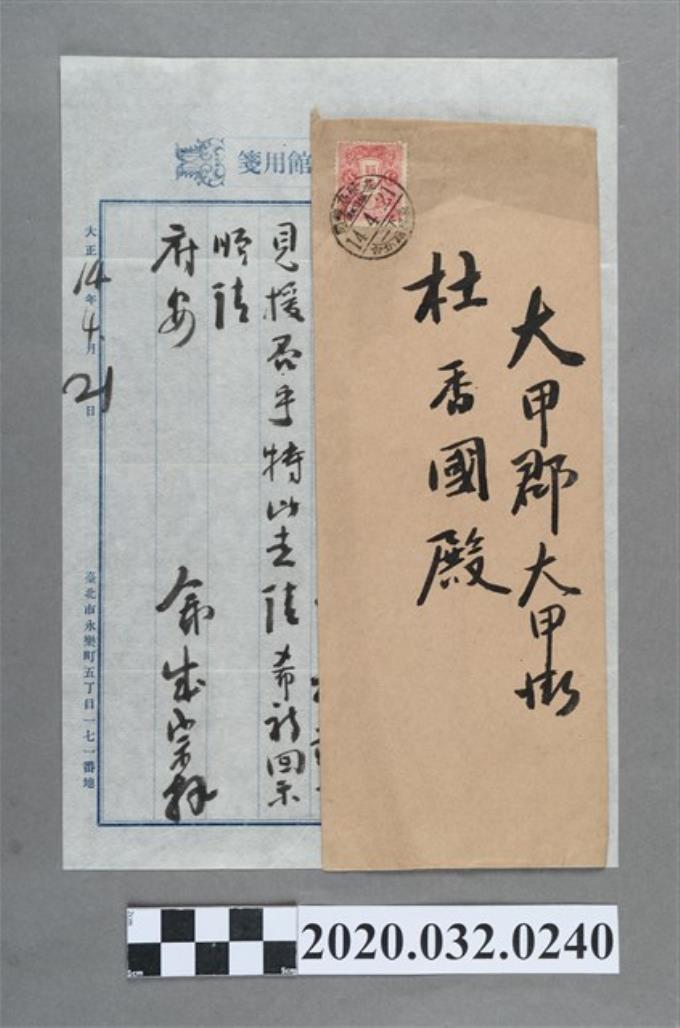 大甲郡大甲街
杜香國殿
14.4.21
館用箋
見援否乎特此走陳希祈回示
順請
府安
大正14年4月21日
臺北市永樂町五丁目一七一番地
2cm
5cm
5cm
2020.032.0240